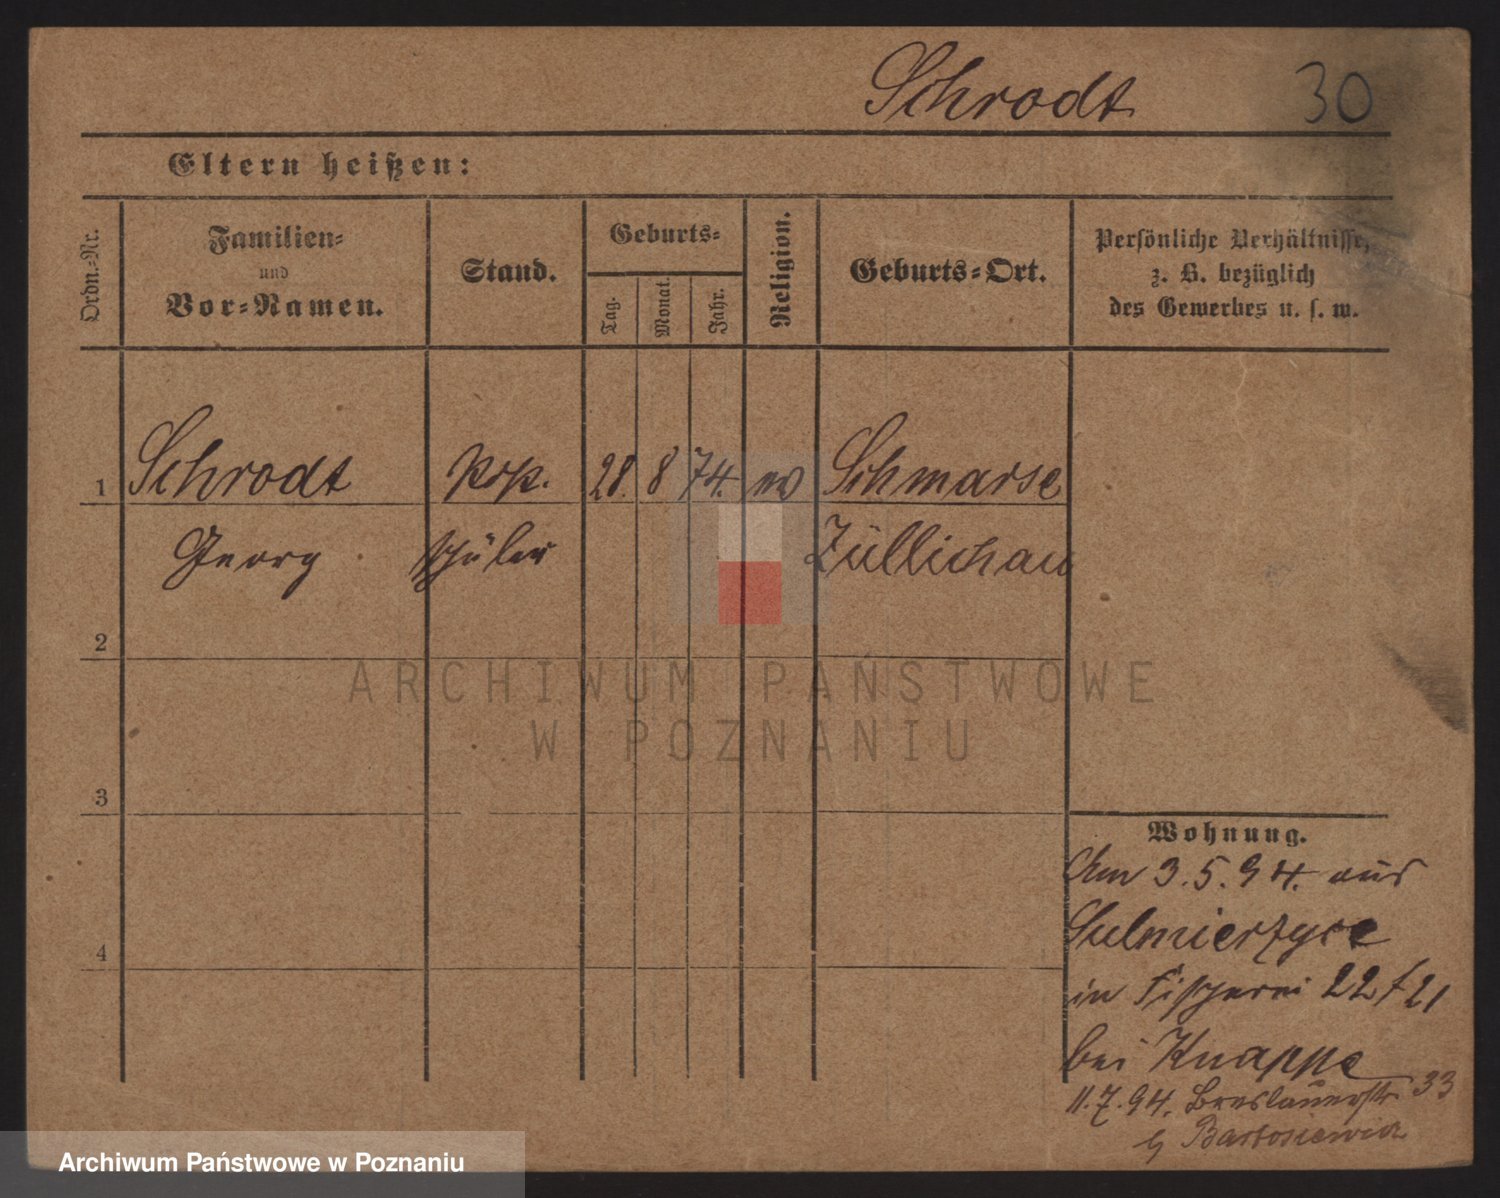 Schrodt 30
Eltern heißen:
Ordn.-Nr.
Familien-
und
Vor-Namen.
Stand.
Geburts-
Tag.
Monat.
Jahr.
Religion.
Geburts-Ort.
Persönliche Verhältnisse,
z. B. bezüglich
des Gewerbes u. s. w.
1 Schrodt 28. 8 74. ev Schmarse
Georg schüler Züllichau
2
3
4
ARCHIWUM PAŃSTWOWE
W POZNANIU
Wohnung.
Am 3.5.94. aus
Sulmierzyce
in Fischerei 22/21
bei Knappe
11.7.94. Breslauerstr. 33
b Bartosiewicz
Archiwum Państwowe w Poznaniu